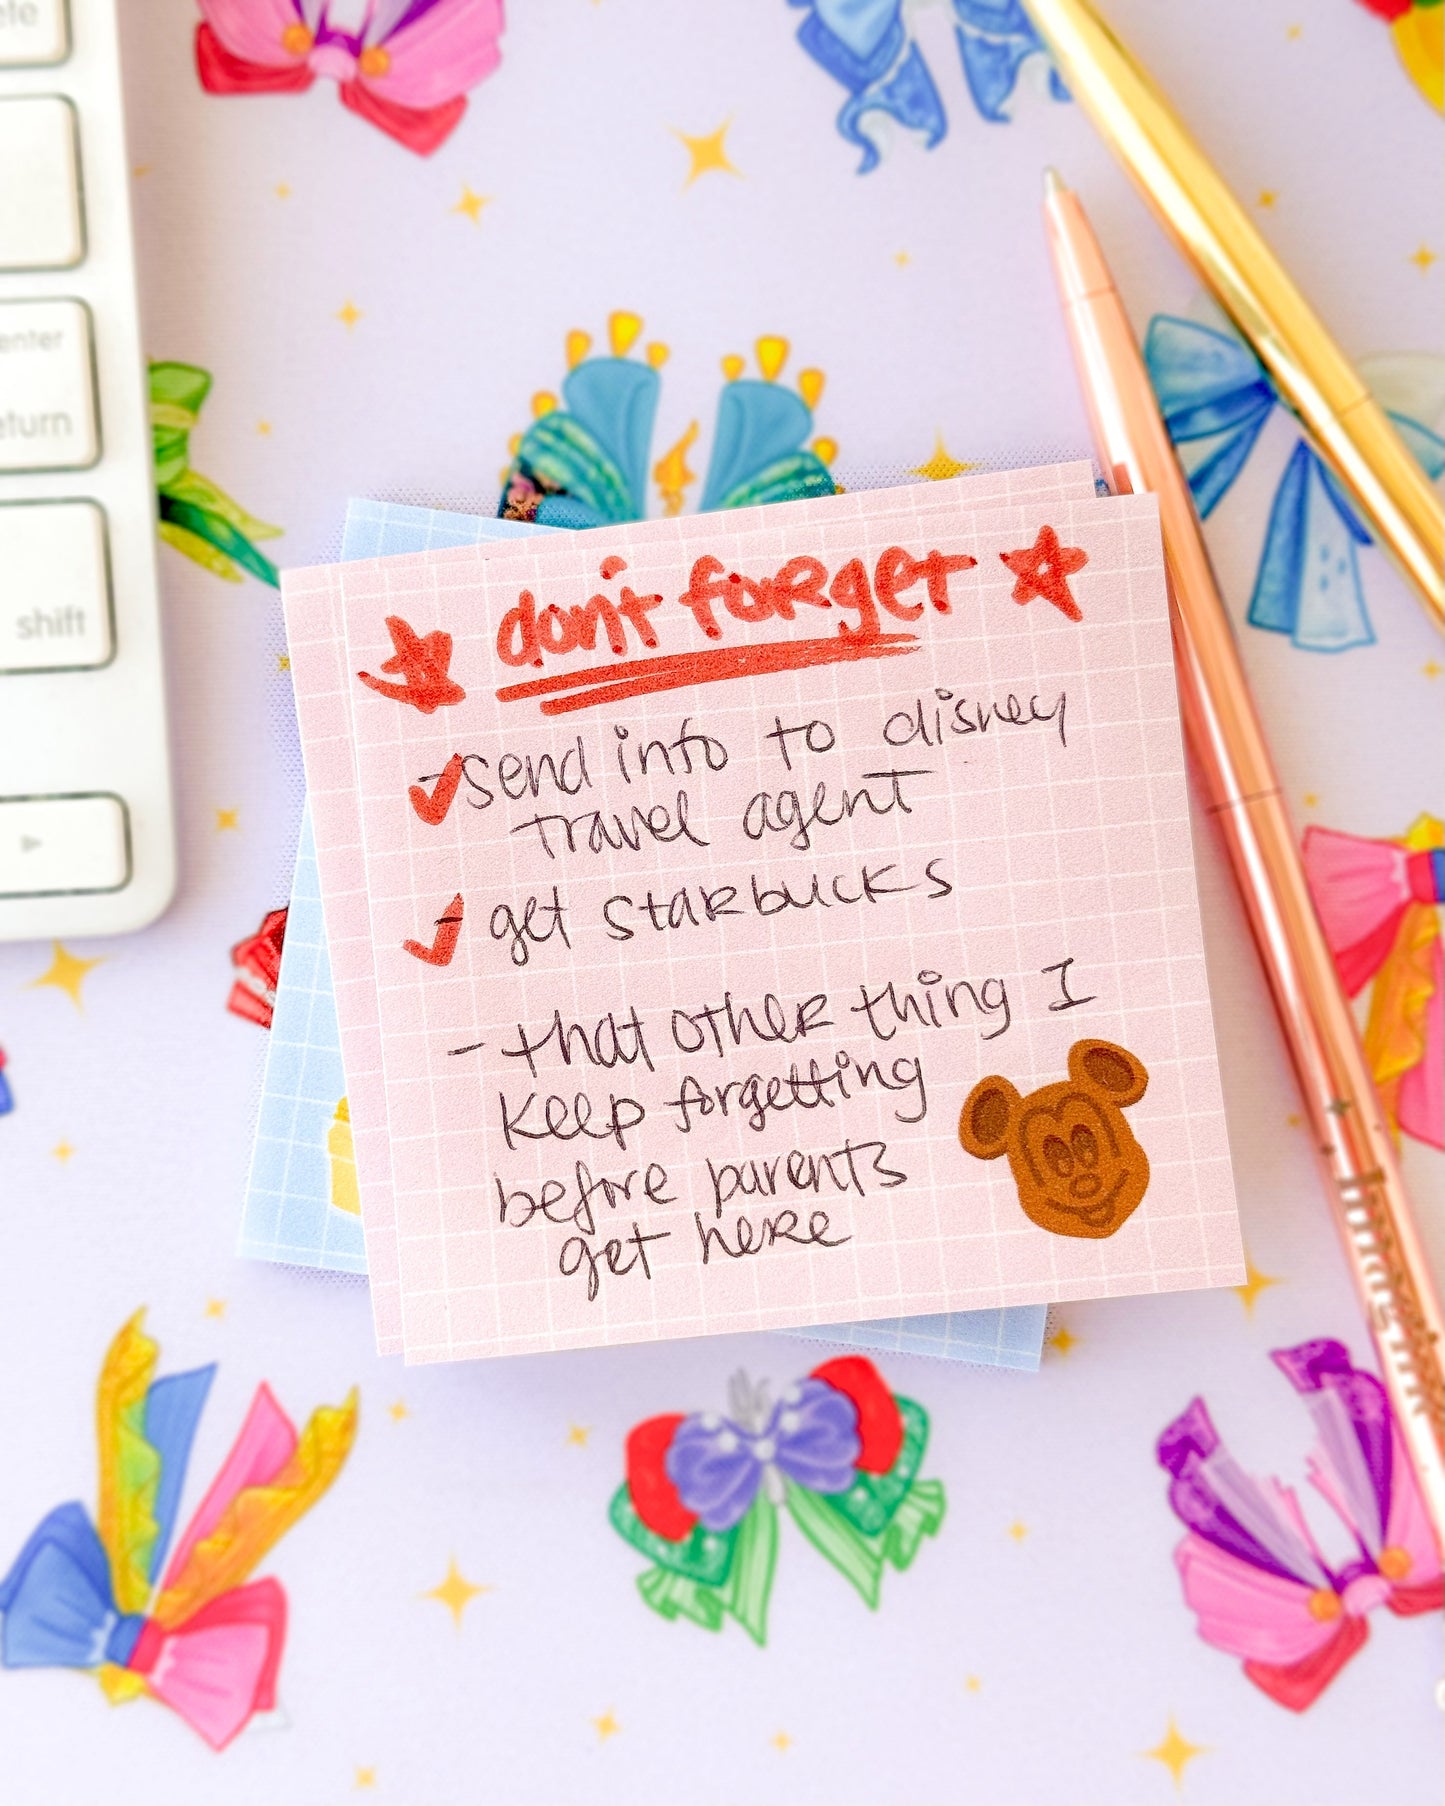 ete
enter
return
shift
don't forget
- send info to disney
travel agent
- get starbucks
- that other thing I
keep forgetting
before parents
get here